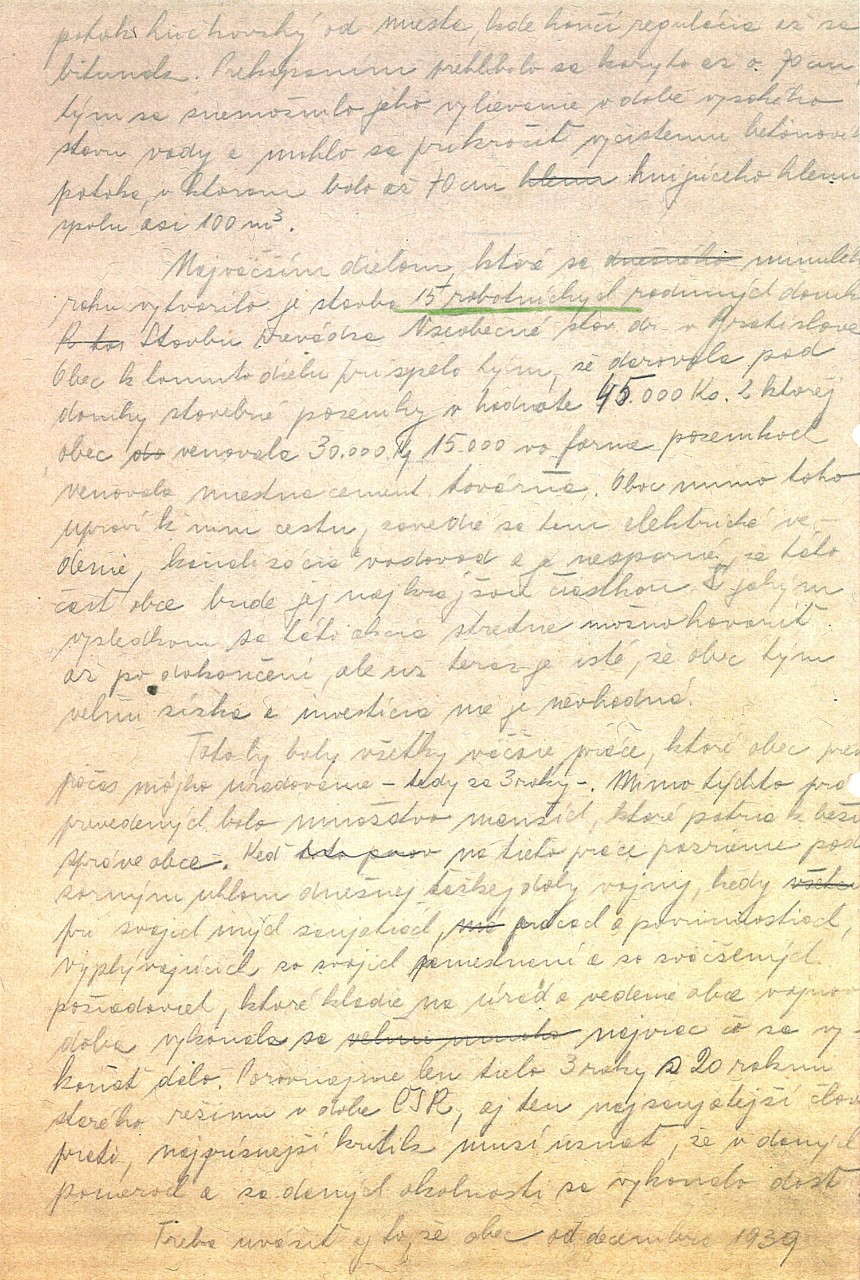 potok Lučkovský od miesta, kde končí regulácia až za
bitunek. Prekopaním prehlbilo sa koryto až o 70 cm
tým sa znemožnilo jeho vylievanie v dobe vysokého
stavu vody a mohlo sa prikročiť vyčisteniu betónové
potoka, v ktorom bolo až 70 cm hlenu hnijúceho hlenu
spolu asi 100 m³.
Najväčším dielom, ktoré sa dnešného minuleh
roku vytvorilo je stavba 15 robotníckych rodinných domk
Stavbu prevádza Všeobecné stav. dr. v Bratislave
Obec k tomuto dielu prispela tým, že darovala pod
domky stavebné pozemky v hodnote 45.000 Ks. Z ktorej
obec do venovala 30.000 Ks, 15.000 vo forme pozemkoch
venovala miestna cement. továrňa. Obec mimo toho
upraví k nim cestu, zavedie sa tam elektrické ve-
denie, kanalizácia vodovod a je nesporné, že táto
časť obce bude jej najkrajšou čiastkou. S jakým
výsledkom sa táto akcia stretne možno hovoriť
až po dokončení, ale už teraz je isté, že obec tým
veľmi získa a investícia nie je nevhodná.
Toto by boly všetky väčšie práce, ktoré obec prev
počas môjho úradovania - tedy za 3 roky -. Mimo týchto prá
prevedených bolo množstvo menších, ktoré patria k beži
správe obce. Keď na tieto práce pozrieme pod
zorným uhlom dnešnej ťažkej doby vojny, kedy všetci
pri svojich iných zaujatiach, prácach a povinnostiach,
vyplývajúcich zo svojich zamestnaní a zo zväčšených
požiadaviek, ktoré kladie na úrad a vedenie obce vojnov
doba vykonalo sa veľmi mnoho najviac čo sa vy-
konať dalo. Porovnajme len tieto 3 roky s 20 rokmi
starého režimu v dobe ČSR, aj ten najzaujatejší člov
proti, najprísnejší kritik musí uznať, že v daných
pomeroch a za daných okolností sa vykonalo dosť
Treba uvážiť aj to, že obec od decembra 1939